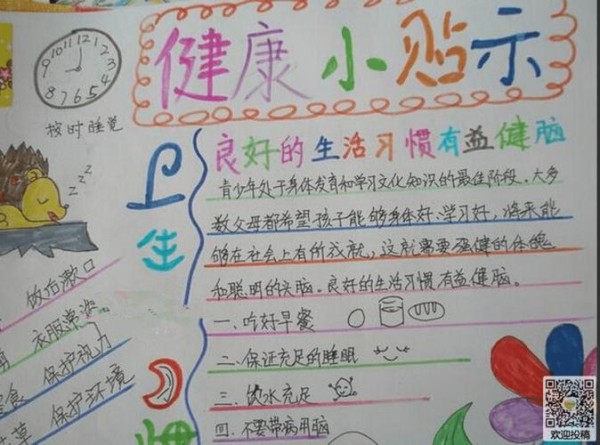 健康小贴示
10 11 12 1 2 3 4 5 6 7 8 9
按时睡觉
zzz
卫生
良好的生活习惯有益健脑
青少年处于身体发育和学习文化知识的最佳阶段。大多
数父母都希望孩子能够身体好、学习好，将来能
够在社会上有所成就，这就需要强健的体魄
和聪明的头脑。良好的生活习惯有益健脑。
一、吃好早餐
二、保证充足的睡眠
三、饮水充足
四、不要带病用脑
饭后漱口
衣服常
保护视力
保护环境
欢迎投稿